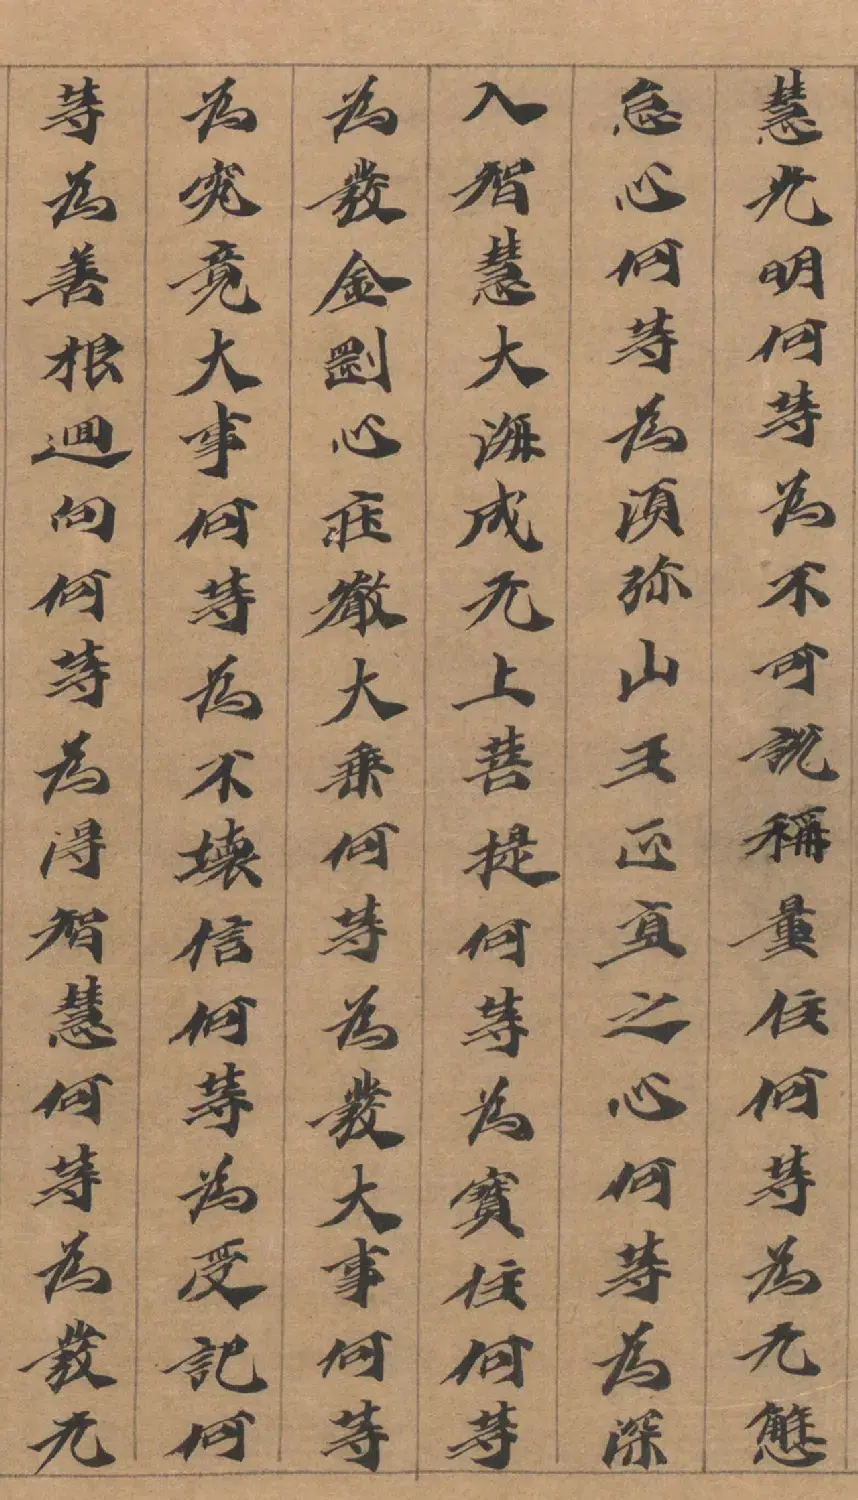 慧光明何等為不可說稱量住何等為无懈
怠心何等為須弥山王正直之心何等為深
入智慧大海成无上菩提何等為寶住何等
為發金剛心莊嚴大乘何等為發大事何等
為究竟大事何等為不壞信何等為受記何
等為善根迴向何等為得智慧何等為發无